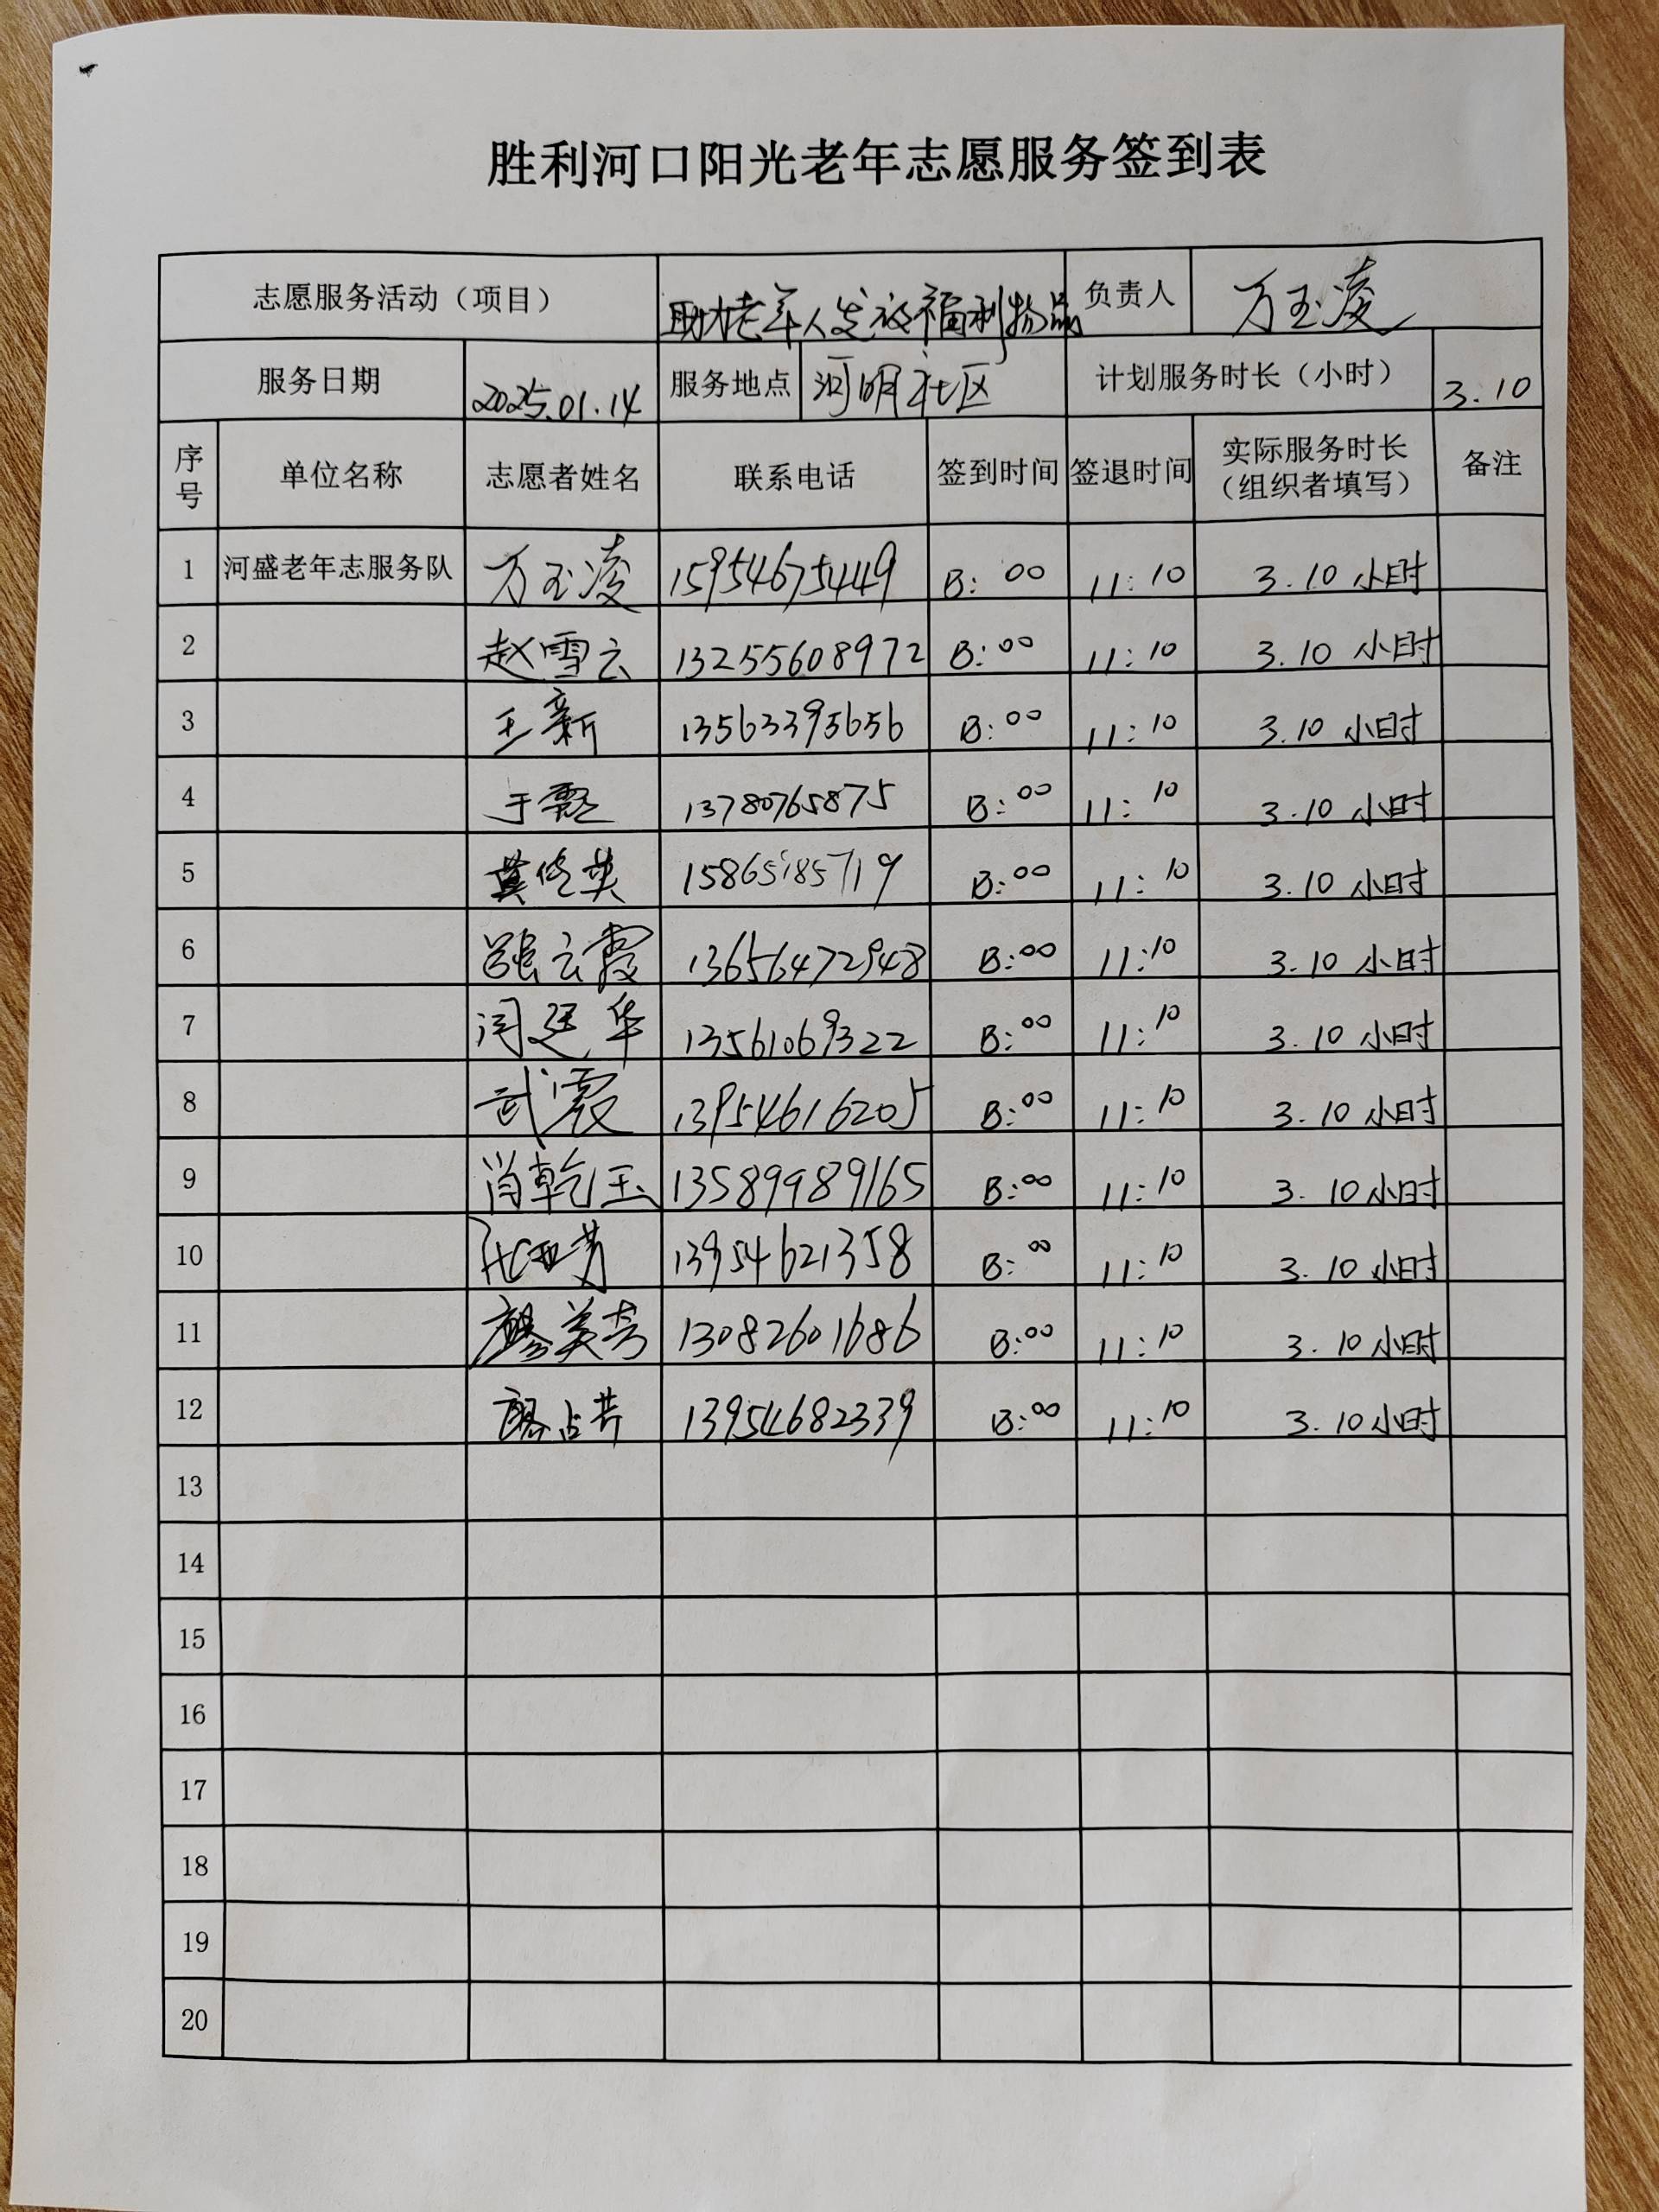 胜利河口阳光老年志愿服务签到表
志愿服务活动（项目） 助老年人发放福利物品 负责人 万玉凌
服务日期 2025.01.14 服务地点 河明社区 计划服务时长（小时） 3.10
序号 单位名称 志愿者姓名 联系电话 签到时间 签退时间 实际服务时长（组织者填写） 备注
1 河盛老年志服务队 万玉凌 15954675449 8:00 11:10 3.10 小时
2 赵雪云 13255608972 8:00 11:10 3.10 小时
3 王新 13563395656 8:00 11:10 3.10 小时
4 于 13780765875 8:00 11:10 3.10 小时
5 15865185719 8:00 11:10 3.10 小时
6 强云霞 13656472948 8:00 11:10 3.10 小时
7 闫廷华 13561069322 8:00 11:10 3.10 小时
8 武震 13954616205 8:00 11:10 3.10 小时
9 肖乾玉 13589989165 8:00 11:10 3.10 小时
10 张亚芳 13954621358 8:00 11:10 3.10 小时
11 廖美芳 13082601686 8:00 11:10 3.10 小时
12 13954682339 8:00 11:10 3.10 小时
13
14
15
16
17
18
19
20